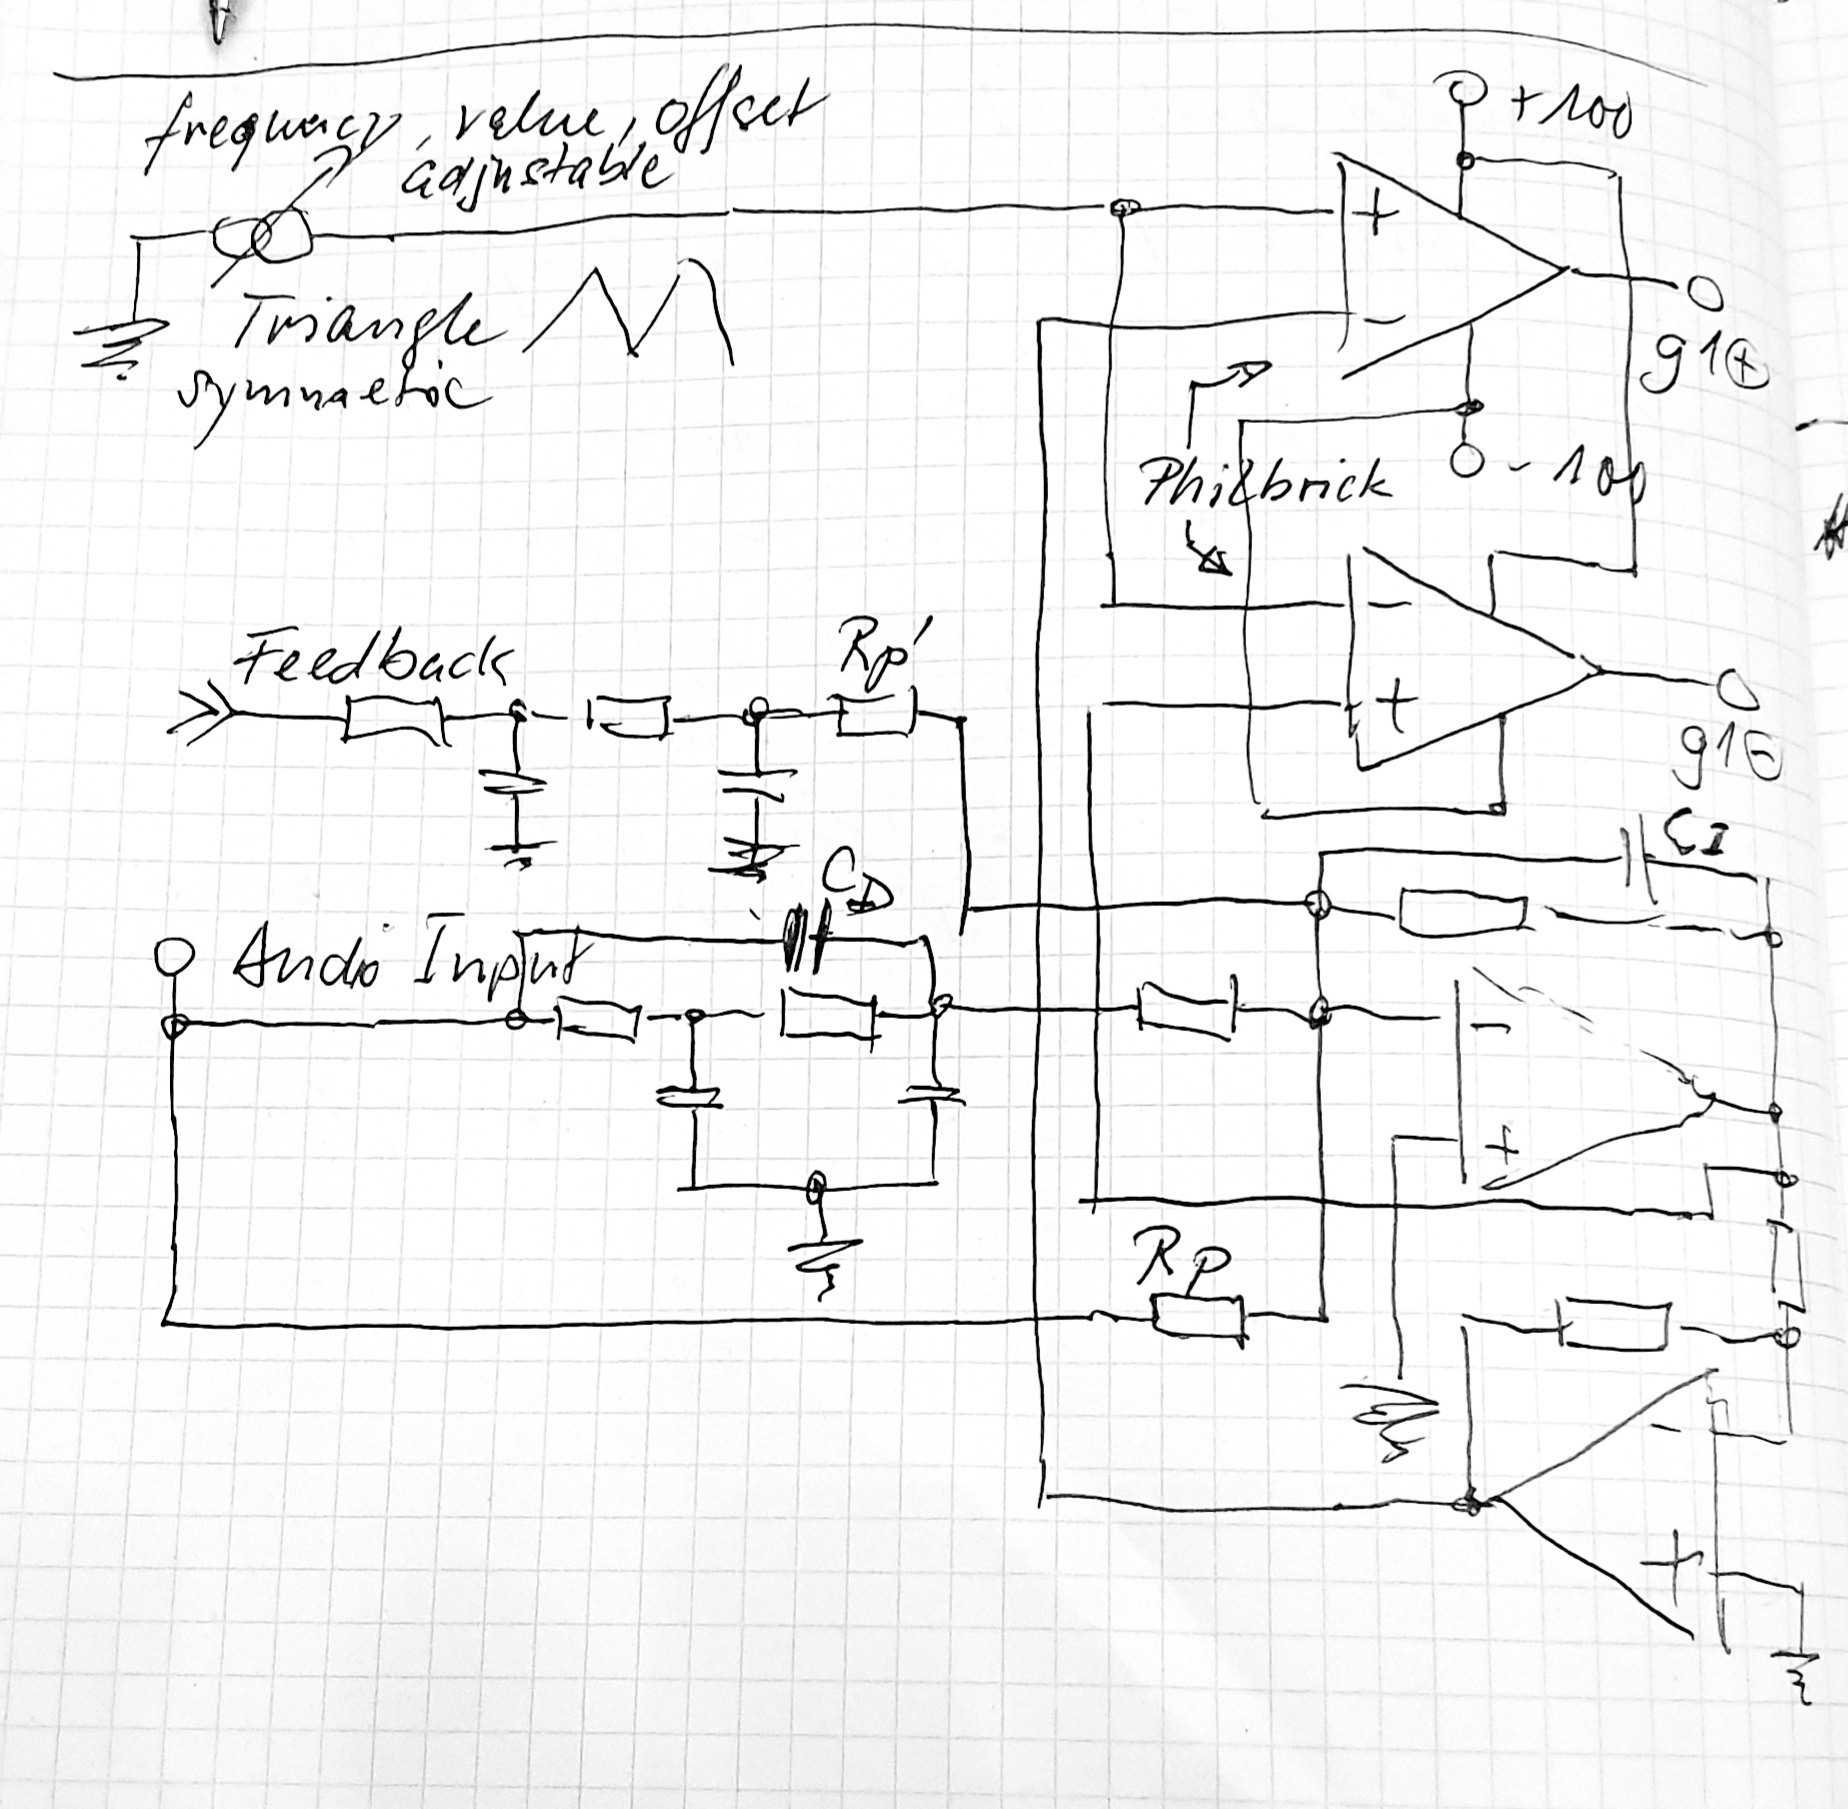 frequency, value, offset
adjustable
+100
+
Triangle
symmetric
-
g1⊕
Philbrick
- 100
Feedback
Rp'
-
+
g1⊖
CI
CD
Audio Input
-
+
Rp
-
+